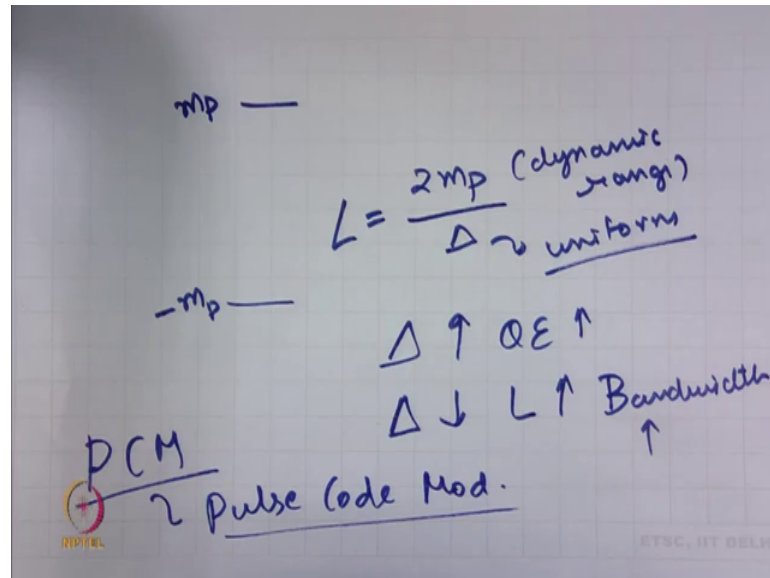 mp —
L = 2mp (dynamic range)
Δ ~ uniform
-mp —
Δ ↑ QE ↑
Δ ↓ L ↑ Bandwidth ↑
PCM
~ Pulse Code Mod.
NPTEL
ETSC, IIT DELHI